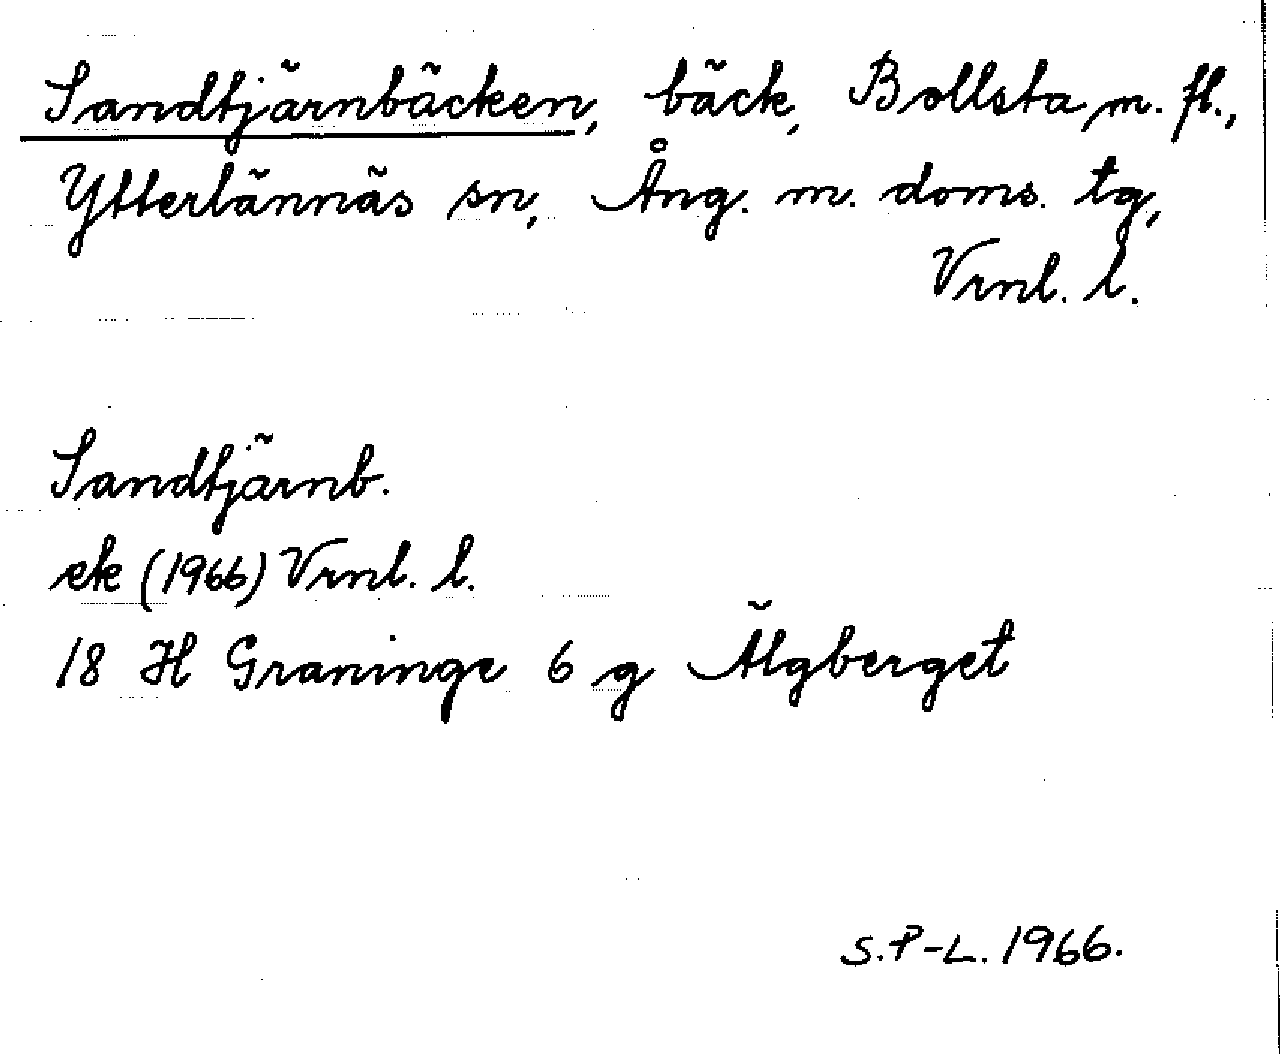 Sandtjärnbäcken, bäck, Bollsta m. fl.,
Ytterlännäs sn, Ång. m. doms. tg,
Vrnl. l.
Sandtjärnb.
ek (1966) Vrnl. l.
18 H Graninge 6 g Älgberget
S.P-L. 1966.